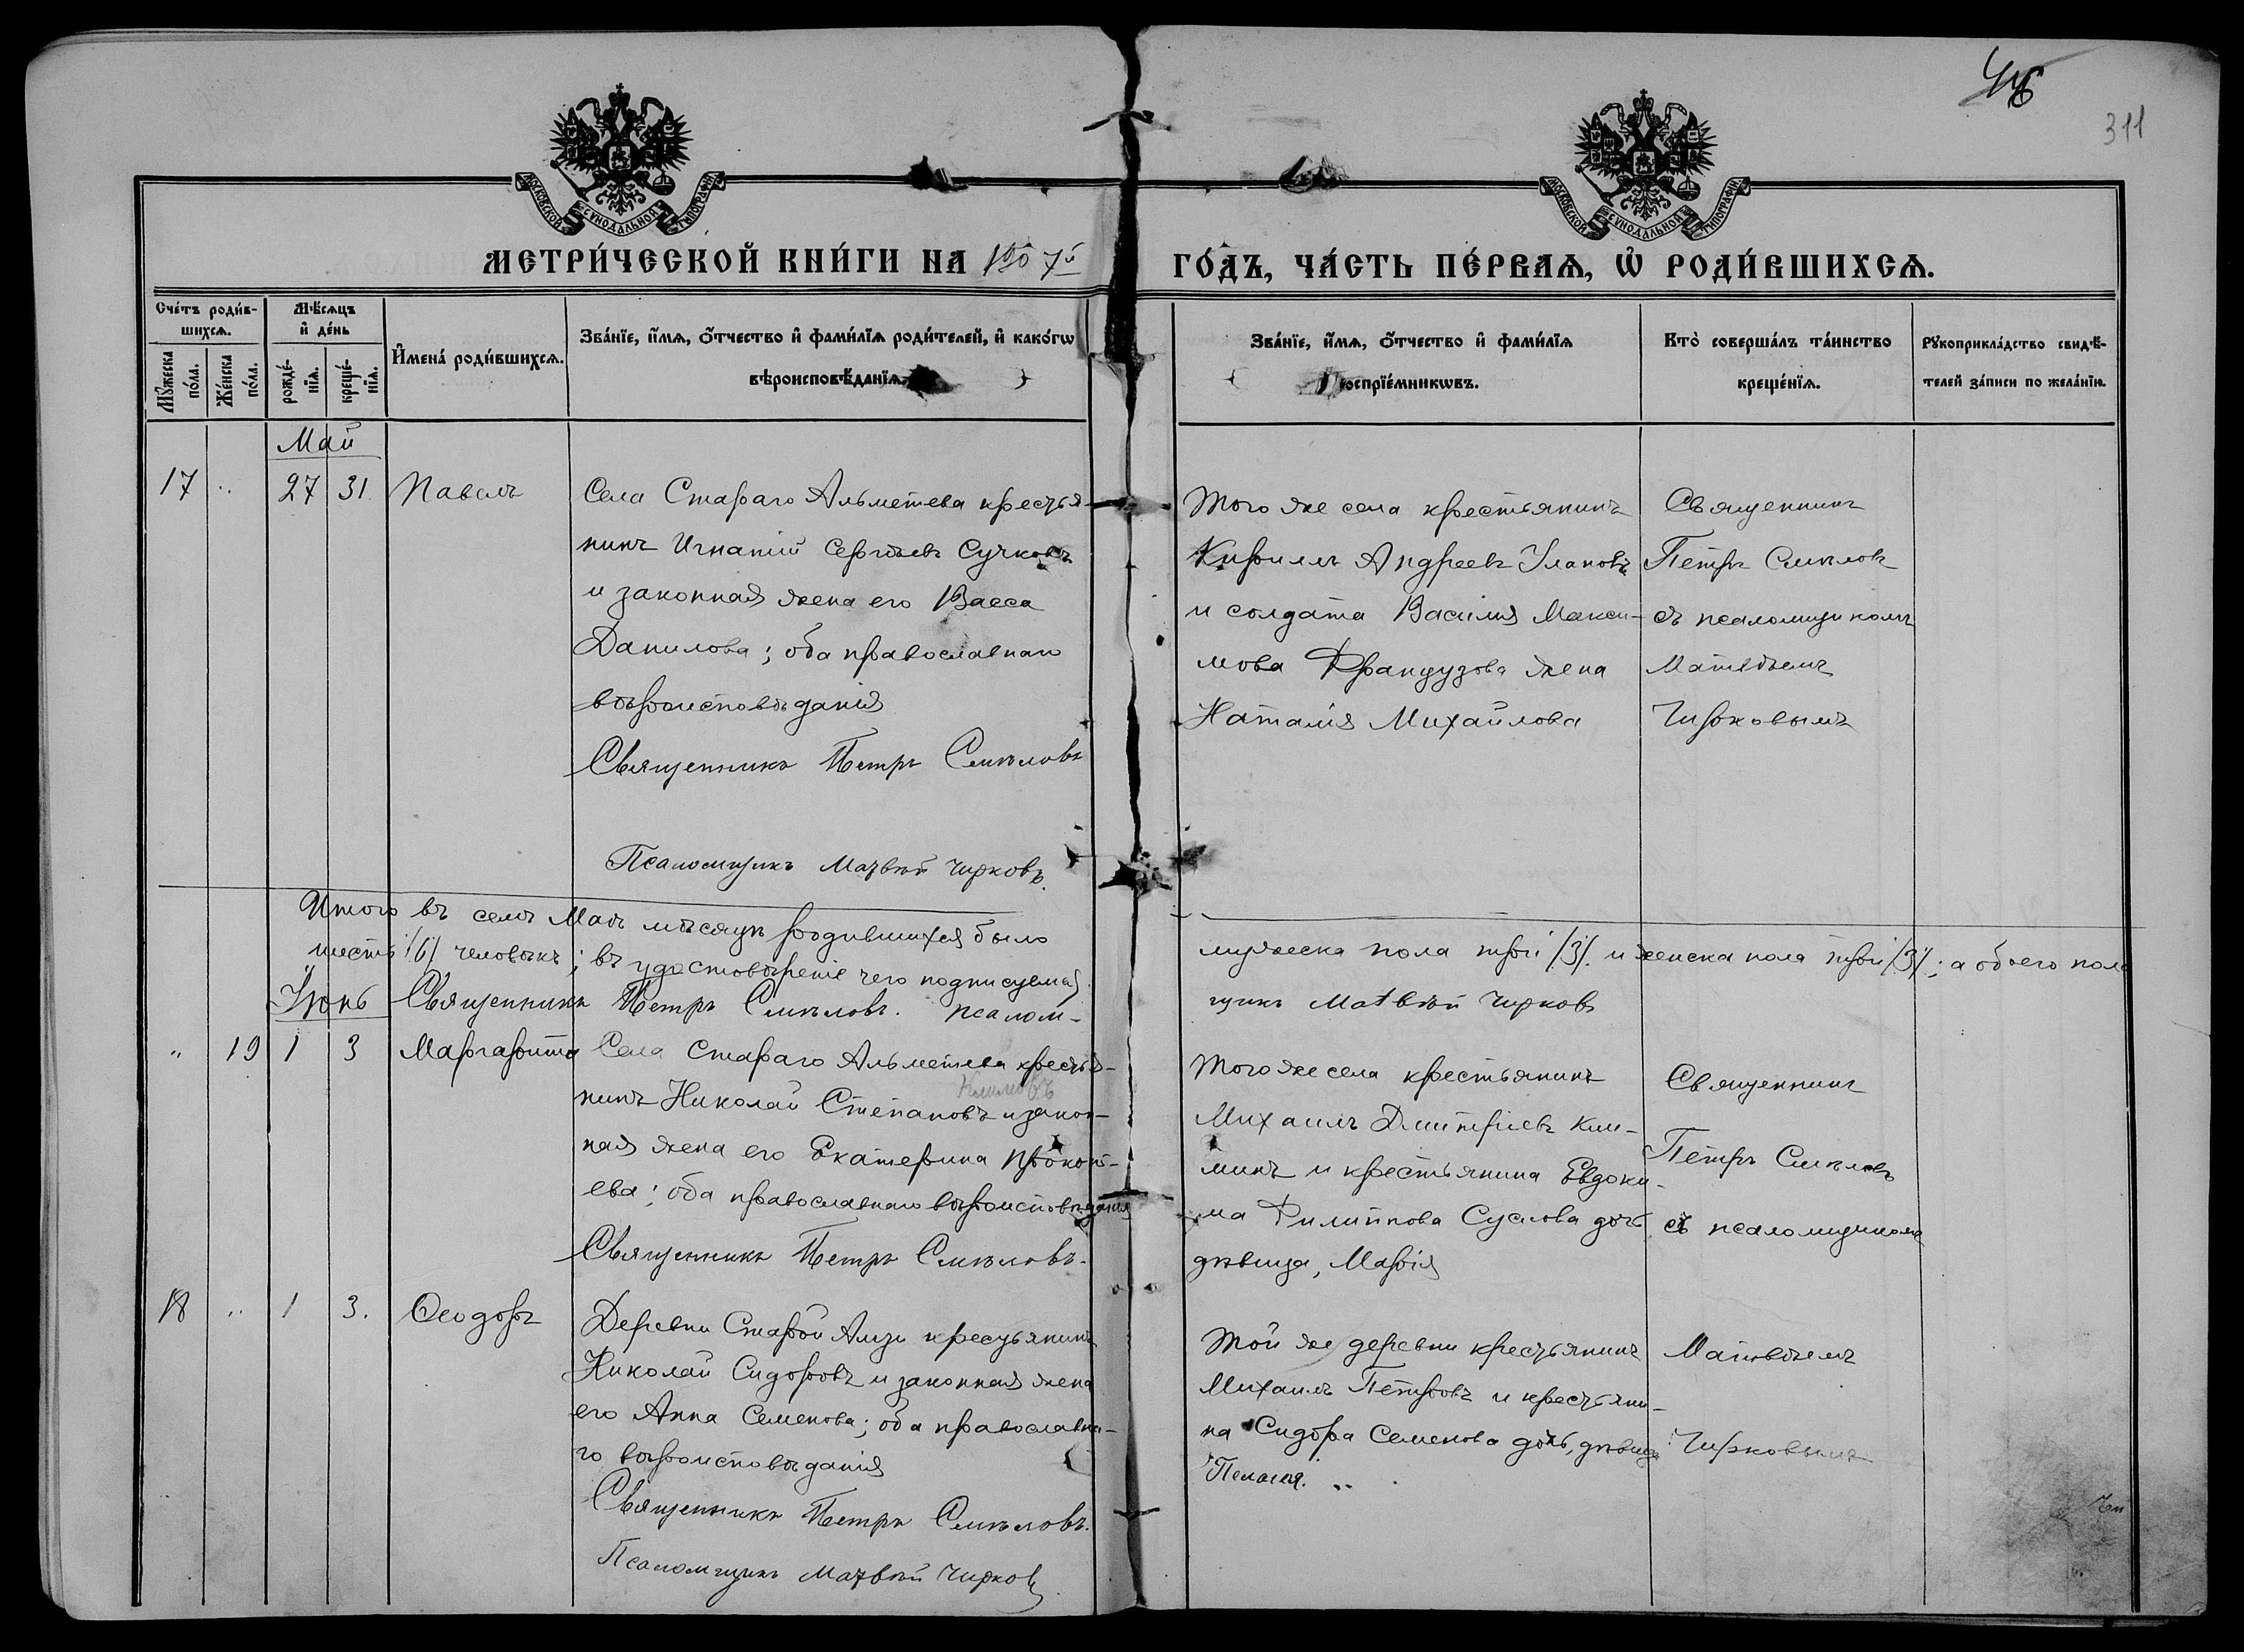 311
МОСКОВСКОЙ СѴНОДАЛЬНОЙ ТИПОГРАФІИ
МОСКОВСКОЙ СѴНОДАЛЬНОЙ ТИПОГРАФІИ
МЕТРИ́ЧЕСКОЙ КНИ́ГИ НА 1907й
ГО́ДЪ, ЧА́СТЬ ПЕ́РВАѦ, Ѡ҆ РОДИ́ВШИХСѦ.
Сче́тъ роди́в-
шихсѧ.
Мꙋ́жеска по́ла.
Же́нска по́ла.
Мѣ́сѧцъ
и҆ де́нь
рожде́-нїѧ.
креще́-нїѧ.
И҆мена̀ роди́вшихсѧ.
Зва́нїе, и҆́мѧ, ѻ҆́тчество и҆ фами́лїѧ роди́телей, и҆ како́гѡ
вѣроисповѣ́данїѧ.
Зва́нїе, и҆́мѧ, ѻ҆́тчество и҆ фами́лїѧ
воспрїе́мникѡвъ.
Кто̀ соверша́лъ та́инство
креще́нїѧ.
Рꙋкоприкла́дство свидѣ́-
телей за́писи по жела́нїю.
Май
17 .. 27 31. Павелъ
Села Стараго Альметева крестья-
нинъ Игнатій Сергѣевъ Сучковъ
и законная жена его Васса
Данилова; оба православнаго
вѣроисповѣданія
Священникъ Петръ Смѣловъ
Псаломщикъ Матвѣй Чирковъ.
Того же села крестьянинъ
Кириллъ Андреевъ Улановъ
и солдата Василія Макси-
мова Французова жена
Наталія Михайлова
Священникъ
Петръ Смѣловъ
съ псаломщикомъ
Матвѣемъ
Чирковымъ
Итого въ семъ Маѣ мѣсяцѣ родившихся было
мужеска пола трое /3/. и женска пола трое /3/; а обоего пола
шесть /6/ человѣкъ; въ удостовѣреніе чего подписуемся
Священникъ Петръ Смѣловъ. псалом-
щикъ Матвѣй Чирковъ
Іюнь
.. 19 1 3 Маргарита
Села Стараго Альметева крестья-
Климовъ
нинъ Николай Степановъ и закон-
ная жена его Екатерина Прокопь-
ева; оба православнаго вѣроисповѣданія
Священникъ Петръ Смѣловъ.
Того же села крестьянинъ
Михаилъ Димитріевъ Кли-
минъ и крестьянина Евдоки-
ма Филиппова Суслова дочь
дѣвица, Марія
Священникъ
Петръ Смѣловъ
съ псаломщикомъ
18 .. 1 3. Ѳеодоръ
Деревни Старой Амзи крестьянинъ
Николай Сидоровъ и законная жена
его Анна Семенова; оба православна-
го вѣроисповѣданія
Священникъ Петръ Смѣловъ.
Псаломщикъ Матвѣй Чирковъ
Той же деревни крестьянинъ
Михаилъ Петровъ и крестьяни-
на Сидора Семенова дочь, дѣвица
Пелагея.
Матвѣемъ
Чирковымъ